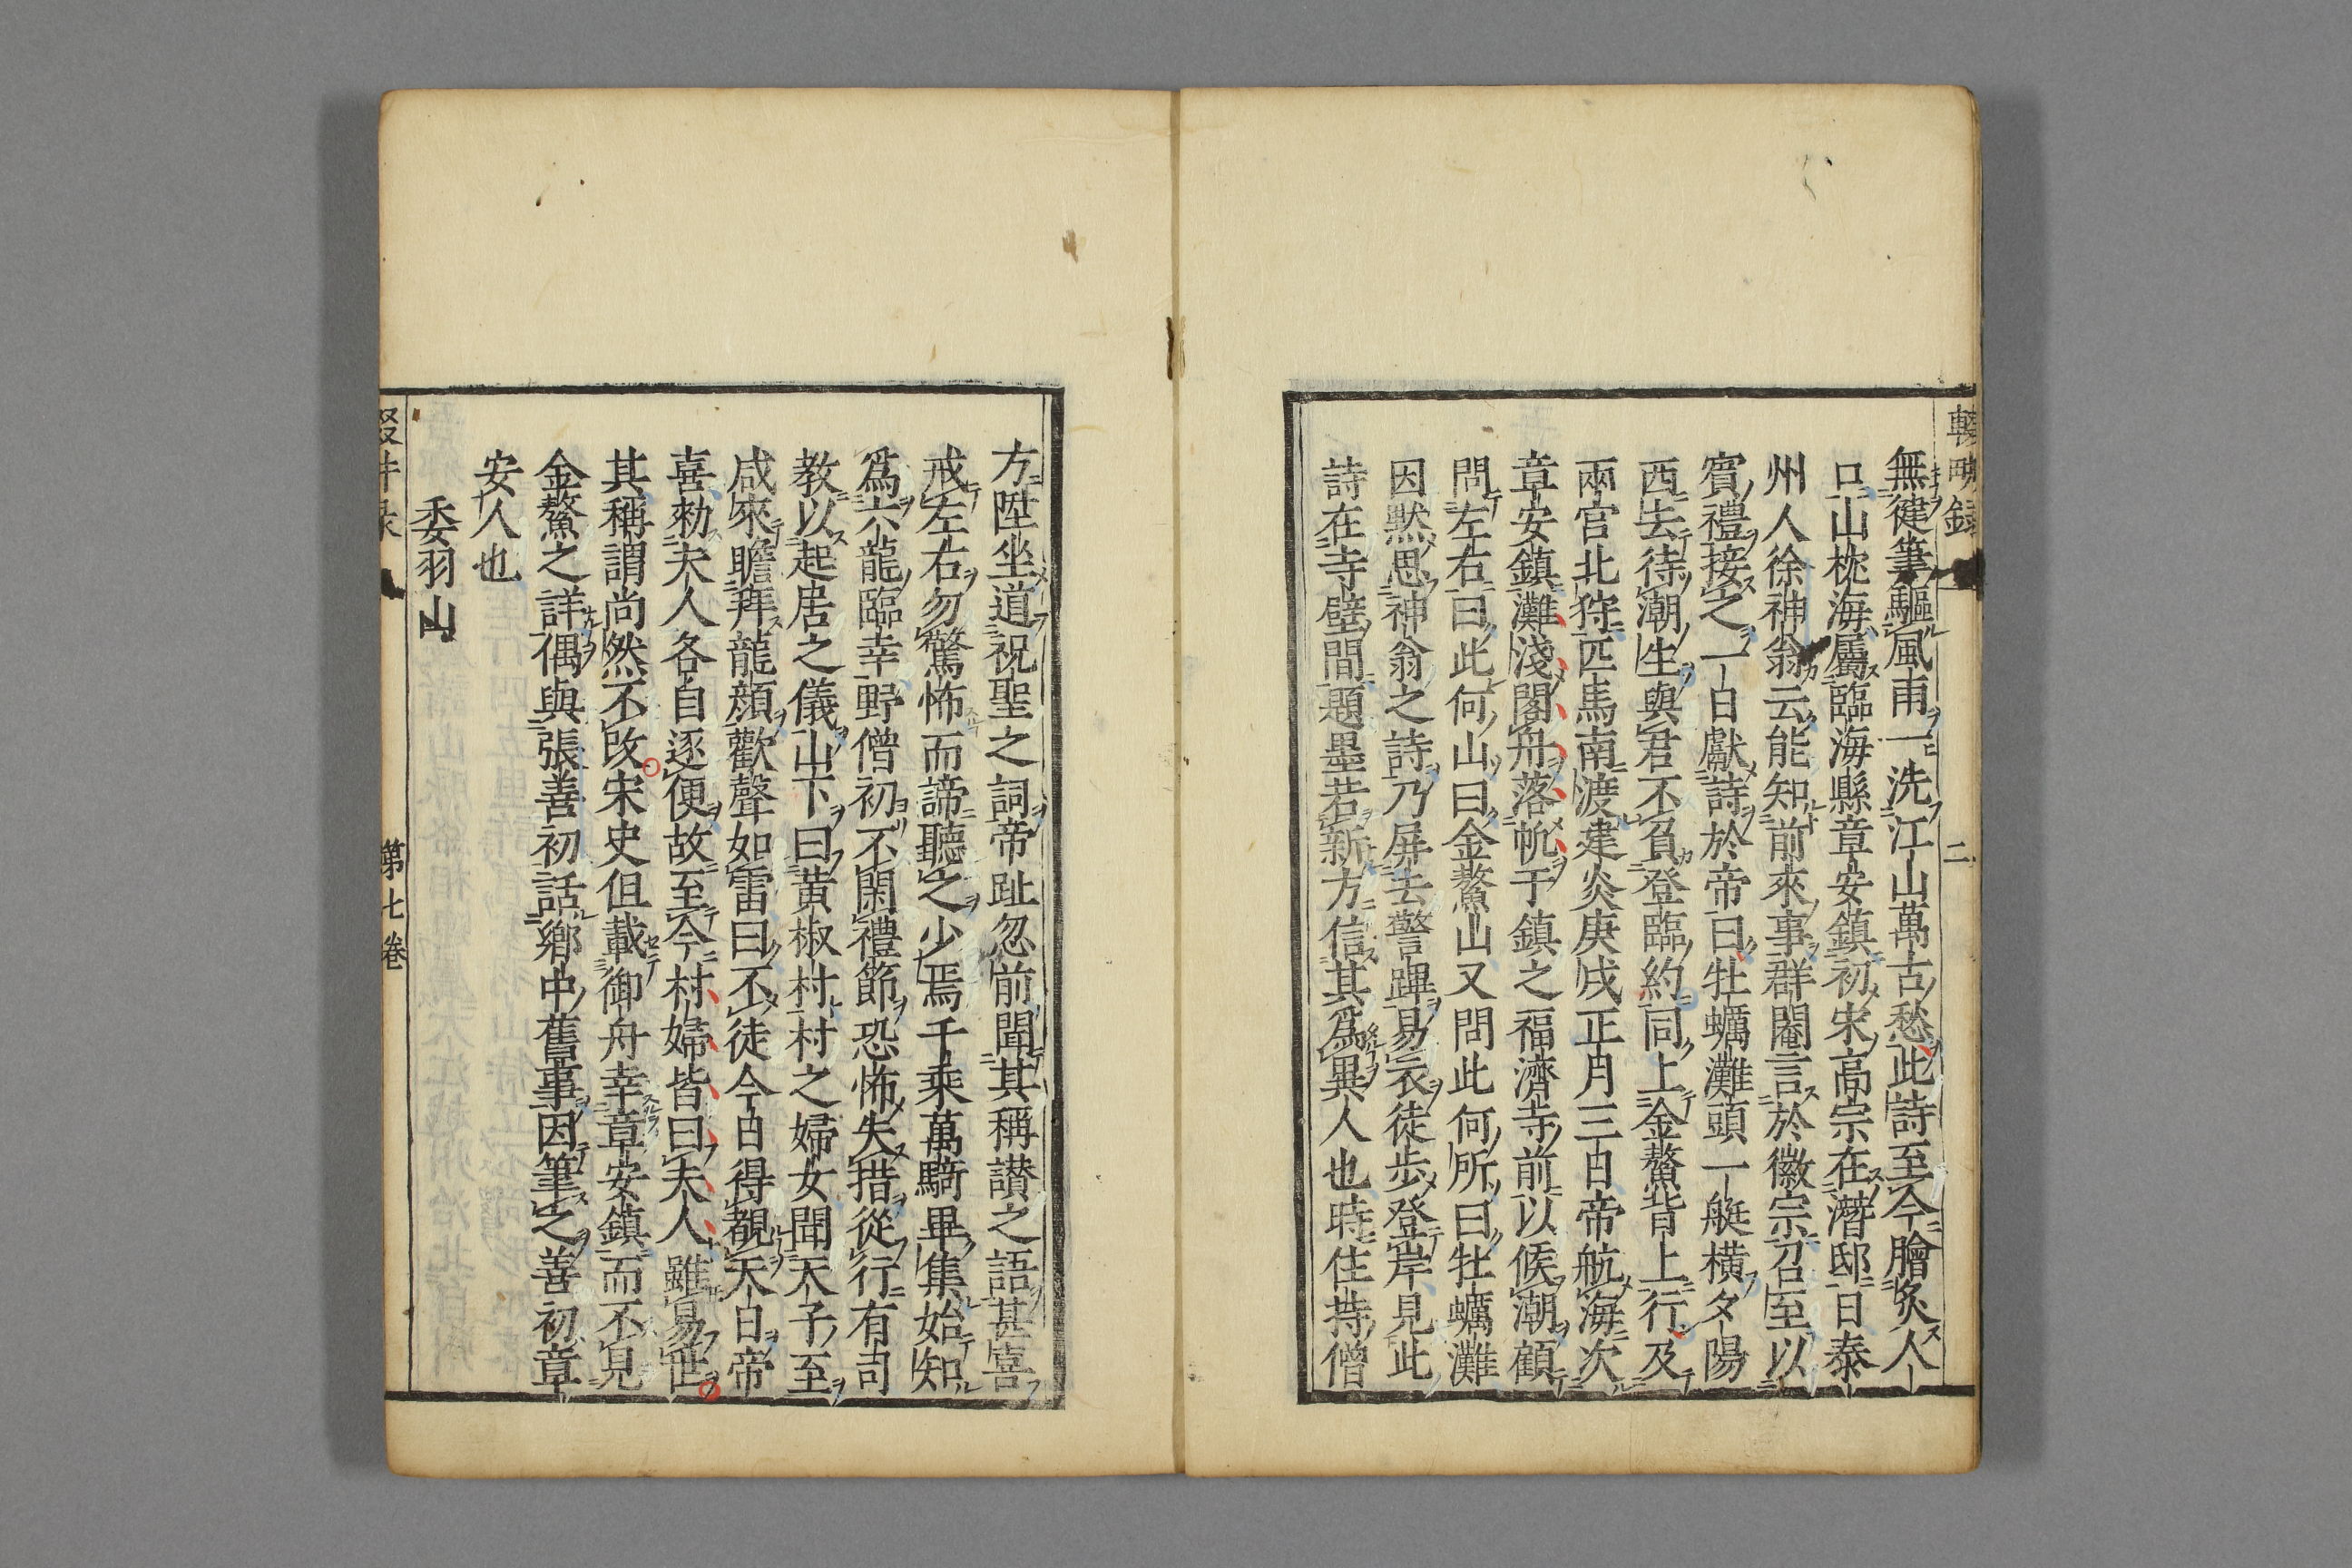 無健筆驅風雨一洗江山萬古愁此詩至今膾炙人
口山枕海屬臨海縣章安鎮初宋高宗在潛邸日泰
州人徐神翁云能知前來事群閹言於徽宗召至以
賓禮接之一日獻詩於帝曰牡蠣灘頭一艇橫夕陽
西去待潮生與君不負登臨約同上金鰲背上行及
兩宮北狩匹馬南渡建炎庚戌正月三日帝航海次
章安鎮灘淺閣舟落帆于鎮之福濟寺前以候潮顧
問左右曰此何山曰金鰲山又問此何所曰牡蠣灘
因默思神翁之詩乃屏去警蹕易衣徒步登岸見此
詩在寺壁間題墨若新方信其爲異人也時住持僧
方陞坐道祝聖之詞帝趾忽前聞其稱讃之語甚喜
戒左右勿驚怖而諦聽之少焉千乘萬騎畢集始知
爲六龍臨幸野僧初不閑禮節恐怖失措從行有司
教以起居之儀山下曰黃椒村村之婦女聞天子至
咸來瞻拜龍顏歡聲如雷曰不徒今日得覩天日帝
喜勑夫人各自逐便故至今村婦皆曰夫人雖易世
其稱謂尚然不改宋史但載御舟幸章安鎮而不見
金鰲之詳偶與張善初話鄉中舊事因筆之善初章
安人也
委羽山
輟畊錄
二
第七卷